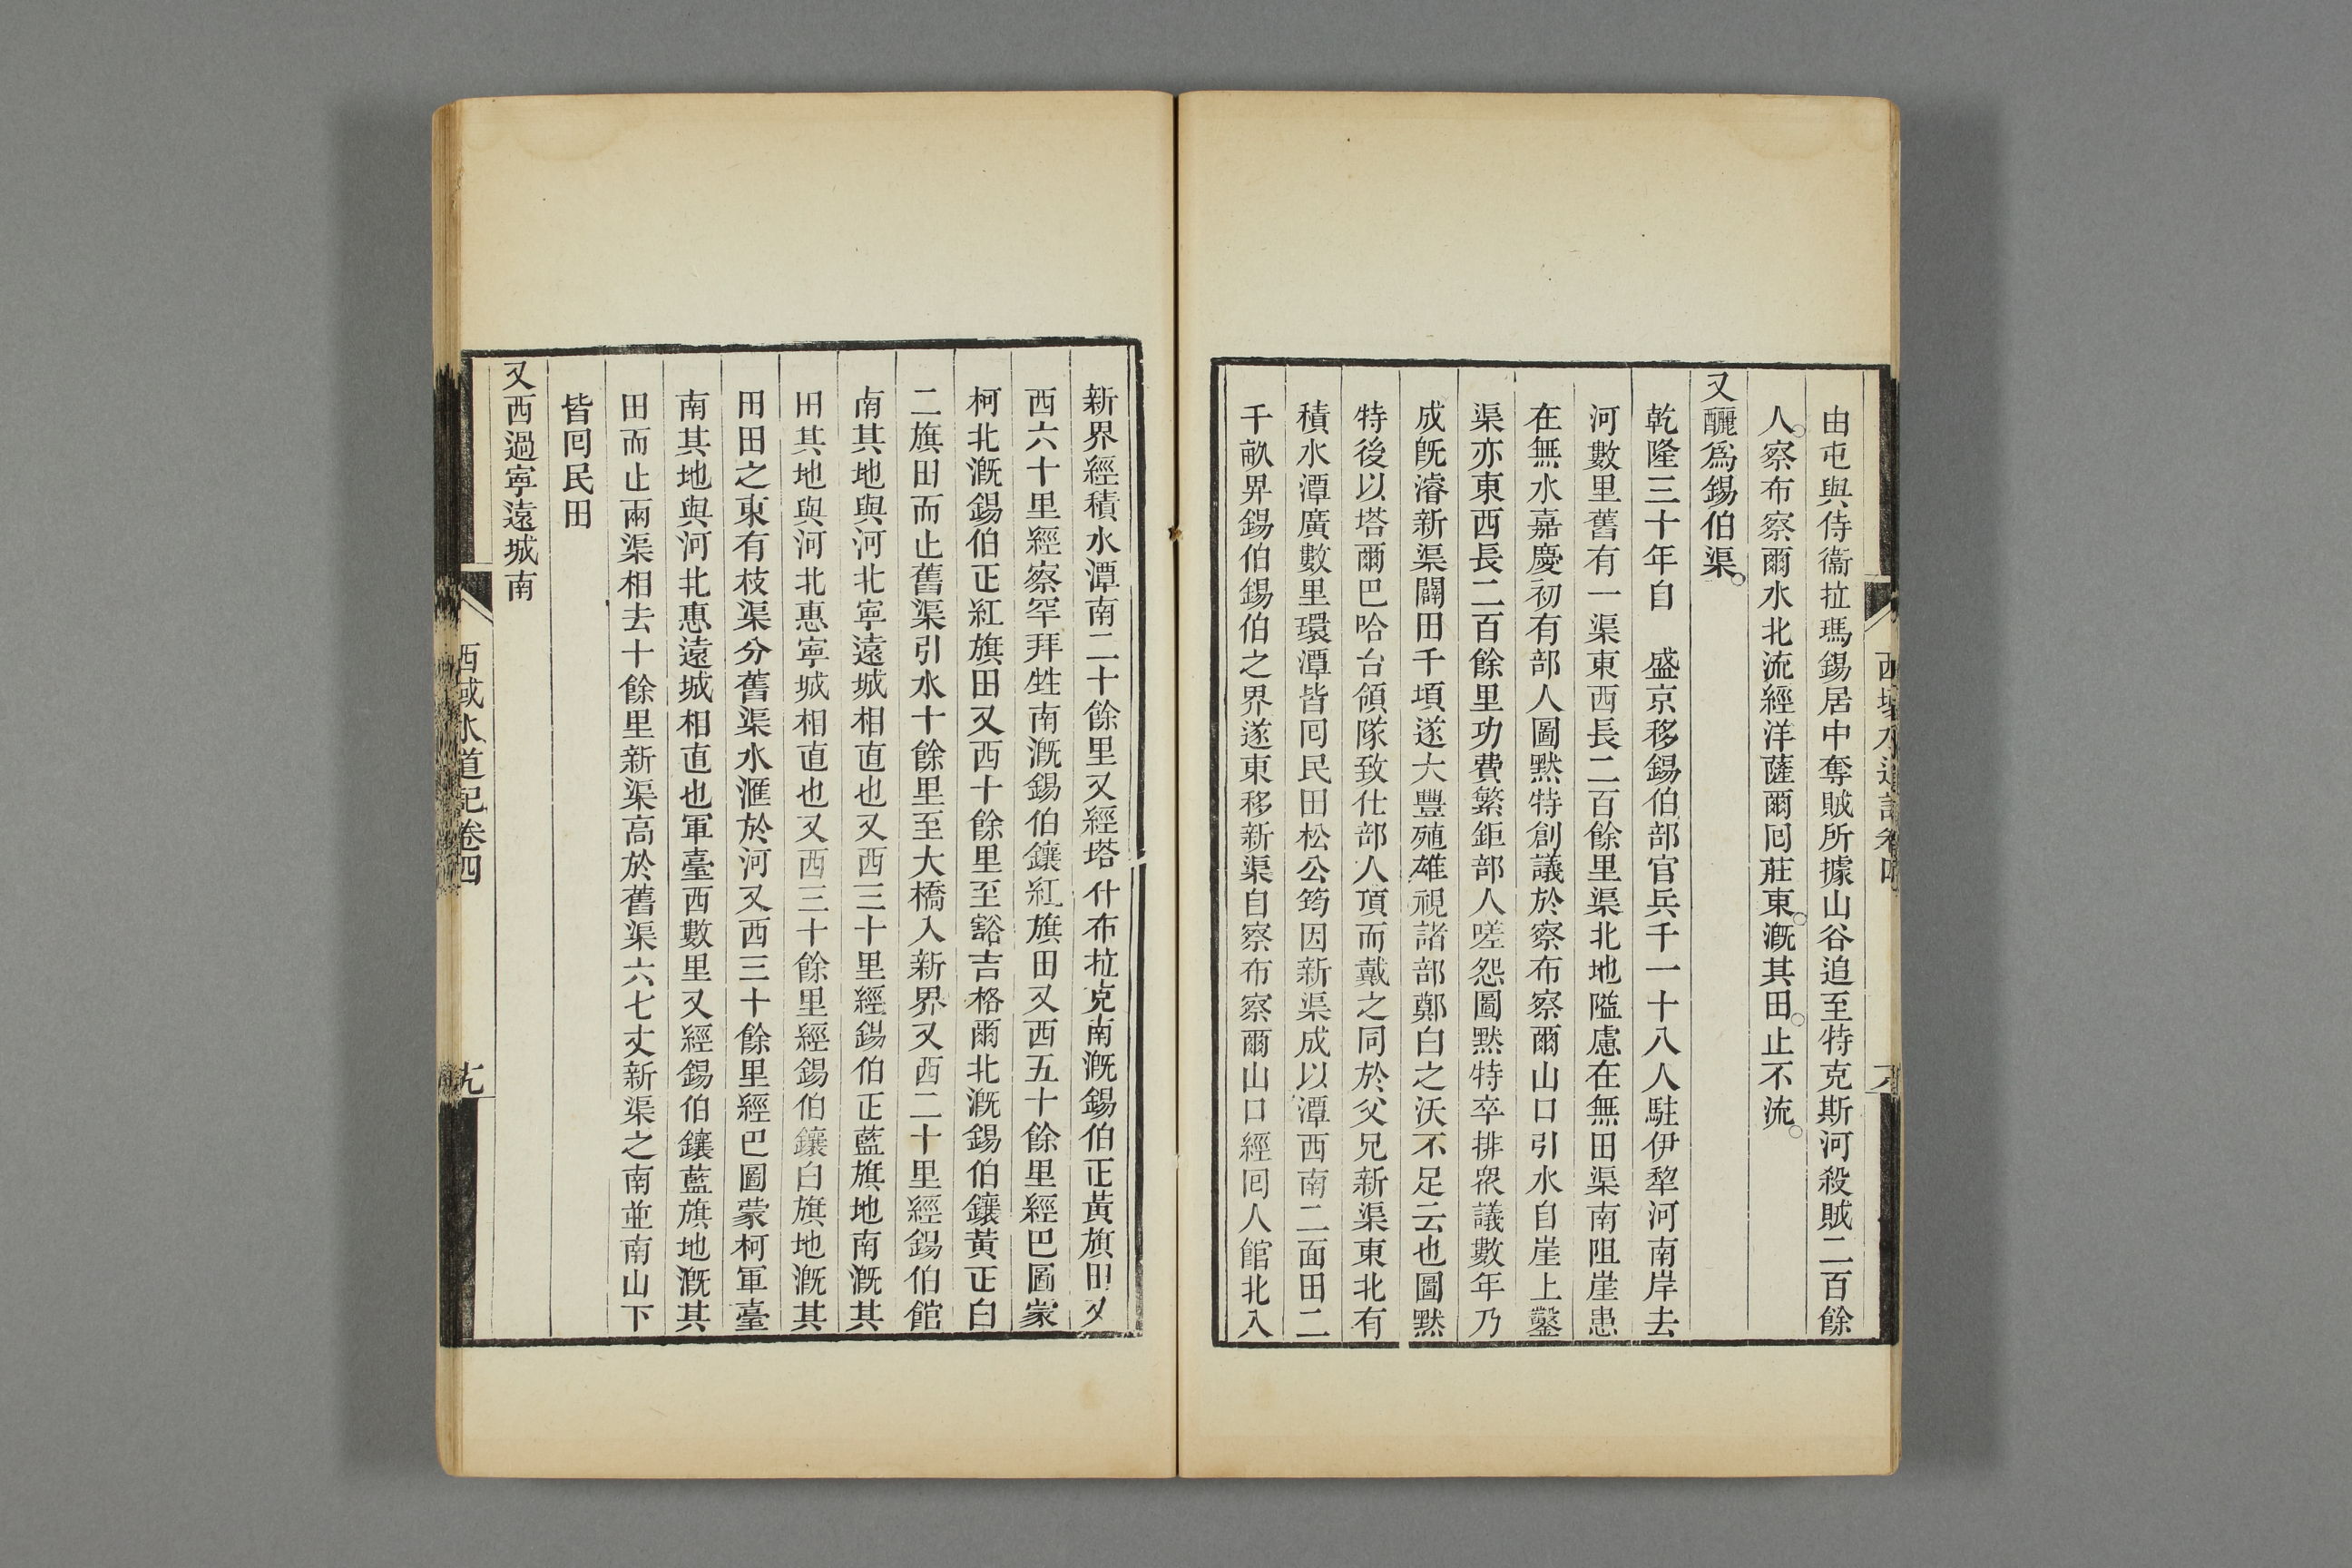 由屯與侍衞拉瑪錫居中奪賊所據山谷追至特克斯河殺賊二百餘
人。察布察爾水北流經洋薩爾囘莊東。漑其田。止不流。
又釃爲錫伯渠。
乾隆三十年自　盛京移錫伯部官兵千一十八人駐伊犂河南岸去
河數里舊有一渠東西長二百餘里渠北地隘慮在無田渠南阻崖患
在無水嘉慶初有部人圖默特創議於察布察爾山口引水自崖上鑿
渠亦東西長二百餘里功費繁鉅部人嗟怨圖默特卒排衆議數年乃
成旣濬新渠闢田千頃遂大豐殖雄視諸部鄭白之沃不足云也圖默
特後以塔爾巴哈台領隊致仕部人頂而戴之同於父兄新渠東北有
積水潭廣數里環潭皆囘民田松公筠因新渠成以潭西南二面田二
千畝畀錫伯錫伯之界遂東移新渠自察布察爾山口經囘人館北入
西域水道記卷四
新界經積水潭南二十餘里又經塔什布拉克南漑錫伯正黃旗田又
西六十里經察罕拜甡南漑錫伯鑲紅旗田又西五十餘里經巴圖蒙
柯北漑錫伯正紅旗田又西十餘里至豁吉格爾北漑錫伯鑲黃正白
二旗田而止舊渠引水十餘里至大橋入新界又西二十里經錫伯館
南其地與河北寧遠城相直也又西三十里經錫伯正藍旗地南漑其
田其地與河北惠寧城相直也又西三十餘里經錫伯鑲白旗地漑其
田田之東有枝渠分舊渠水滙於河又西三十餘里經巴圖蒙柯軍臺
南其地與河北惠遠城相直也軍臺西數里又經錫伯鑲藍旗地漑其
田而止兩渠相去十餘里新渠高於舊渠六七丈新渠之南並南山下
皆囘民田
又西過寧遠城南
西域水道記卷四